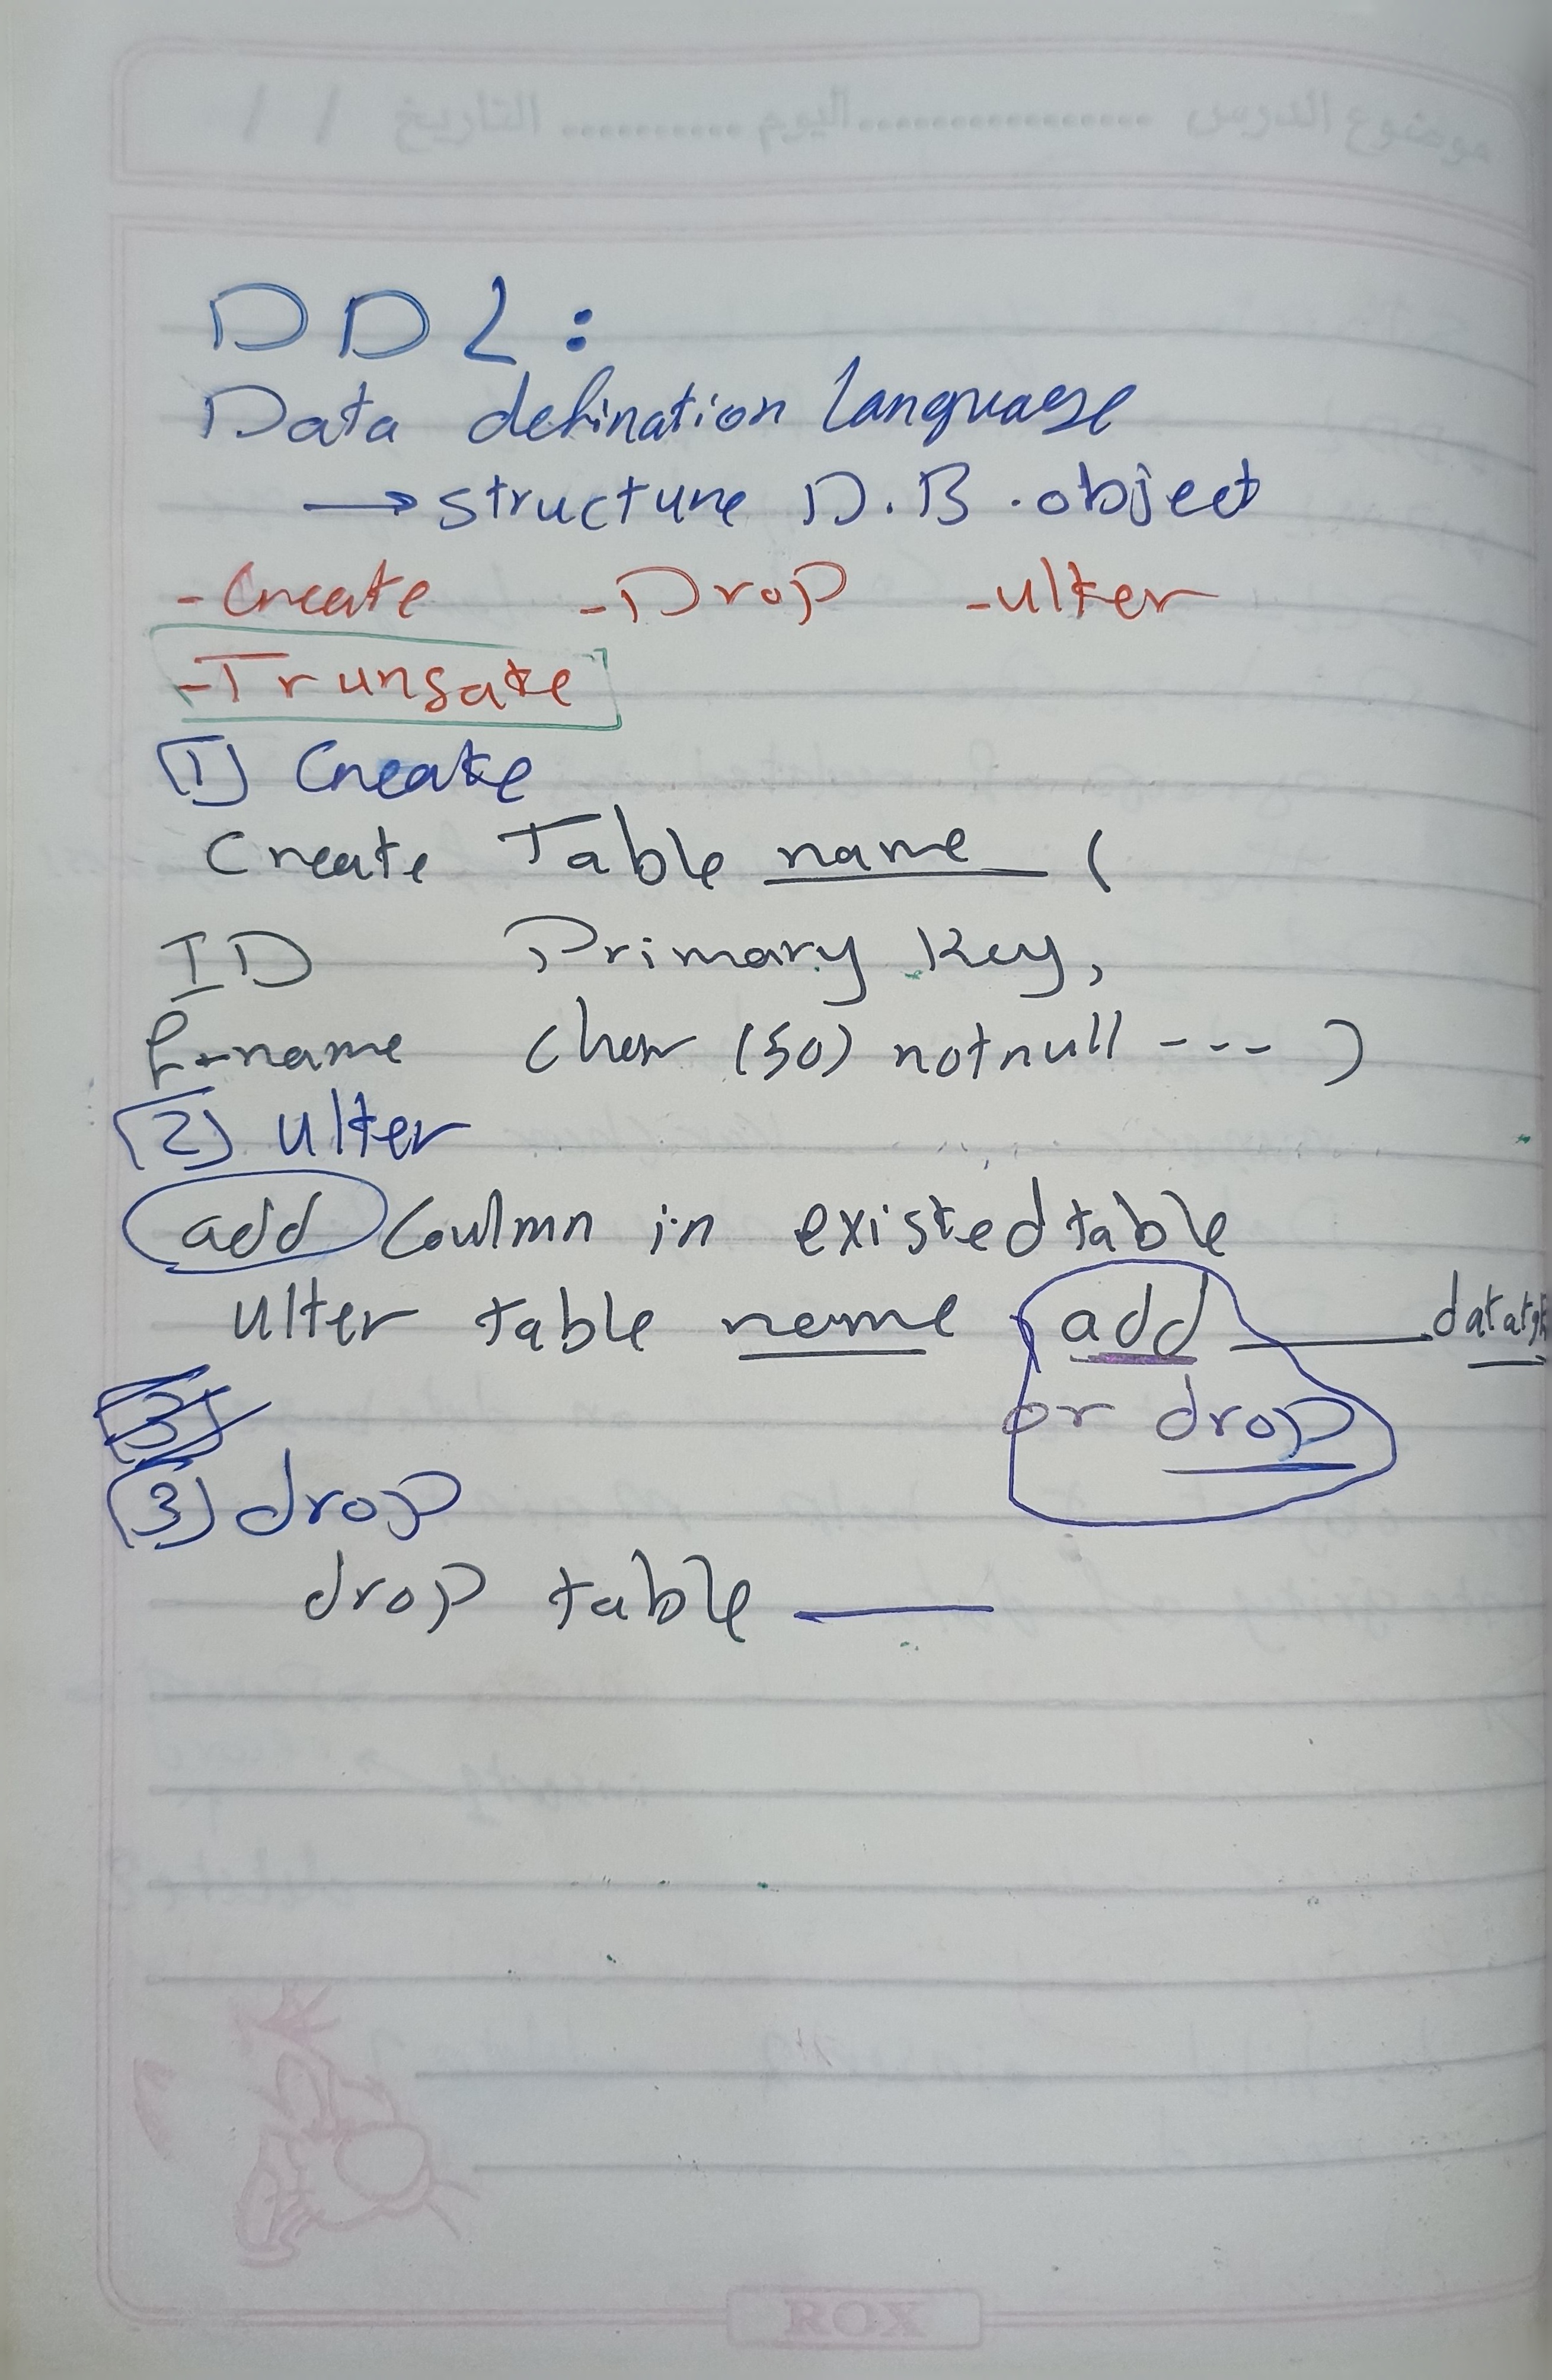 DDL:
Data defination Language
→ structure D.B. object
-Create -Drop -ulter
-Trunsate
[1] Create
Create Table name (
ID Primary Key,
F-name Char (50) notnull --- )
[2] ulter
add Coulmn in existed table
ulter table name add ____ datatyp
or drop
[3] drop
drop table ____